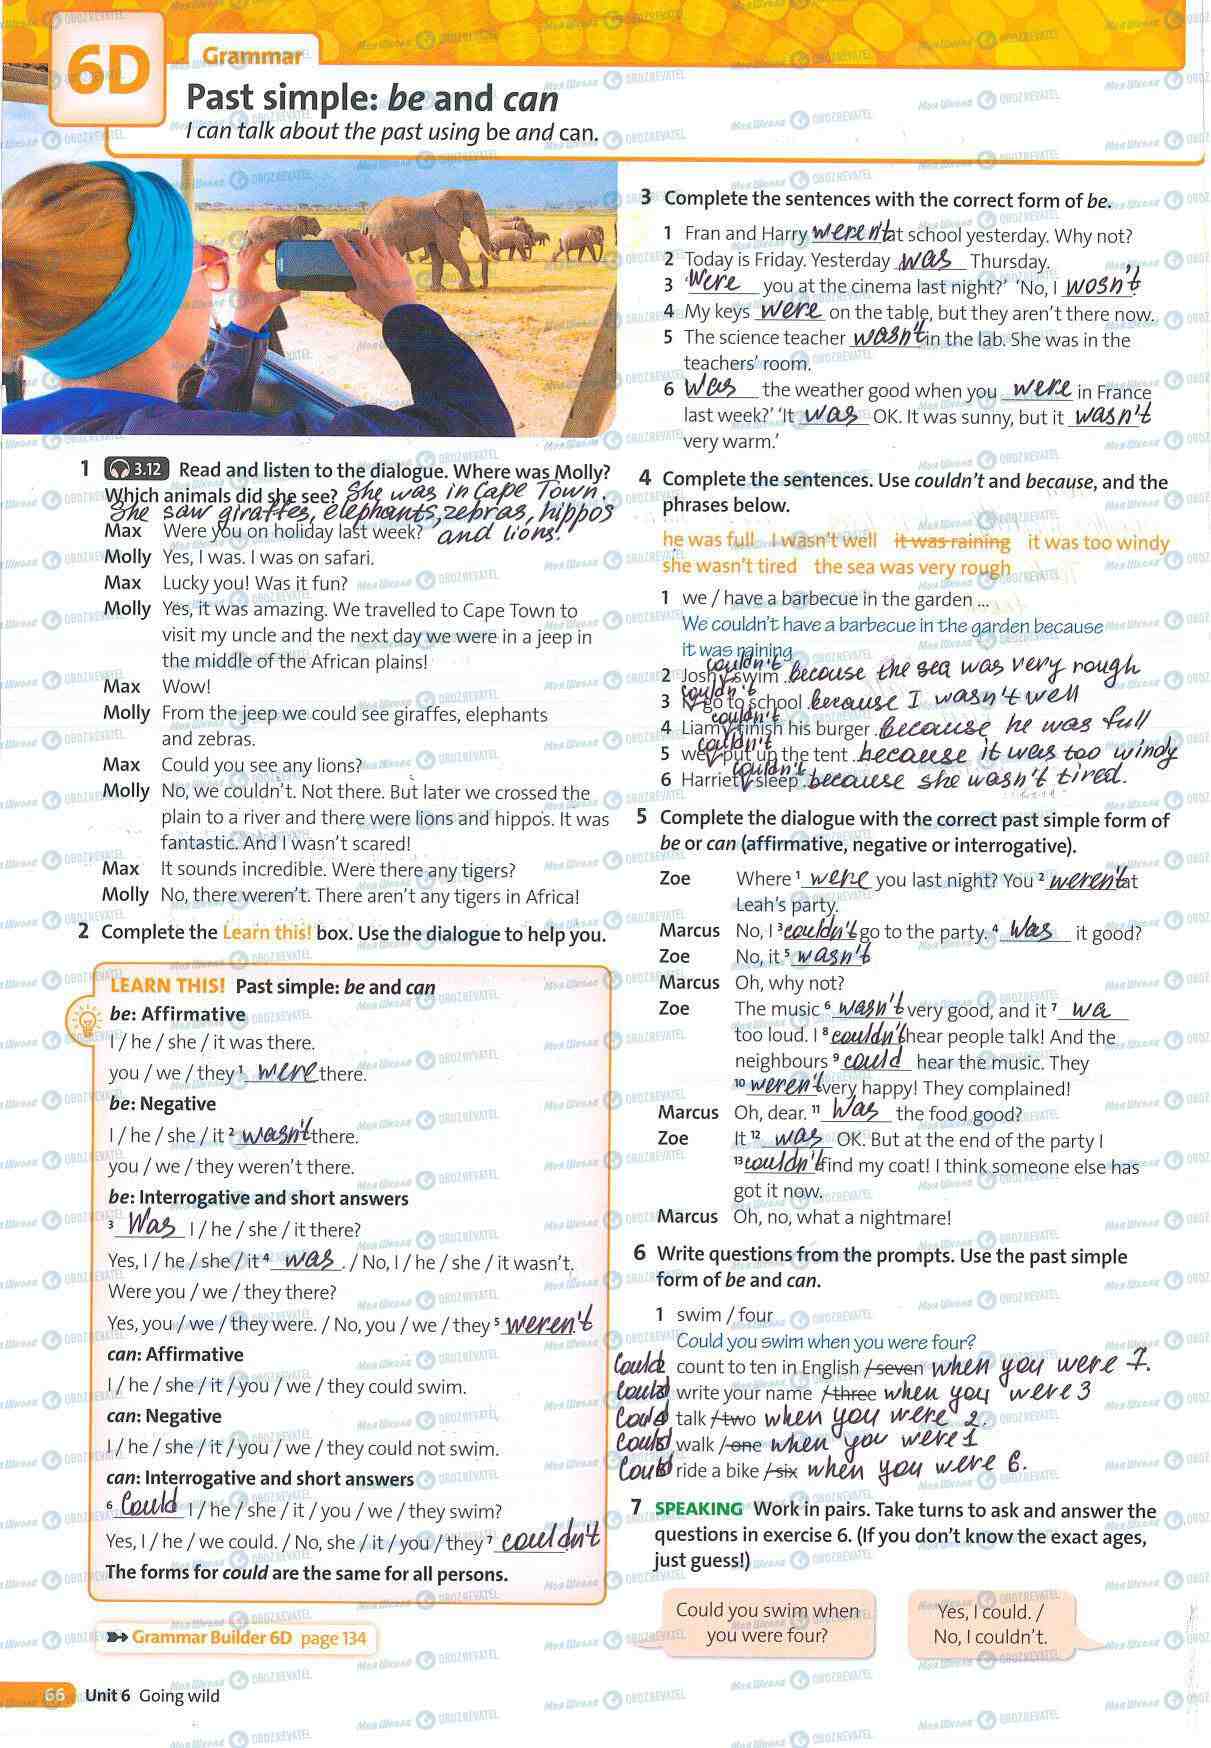 6D
Grammar
Past simple: be and can
I can talk about the past using be and can.
1 3.12 Read and listen to the dialogue. Where was Molly?
Which animals did she see? She was in Cape Town.
She saw giraffes, elephants, zebras, hippos
and lions.
Max Were you on holiday last week?
Molly Yes, I was. I was on safari.
Max Lucky you! Was it fun?
Molly Yes, it was amazing. We travelled to Cape Town to
visit my uncle and the next day we were in a jeep in
the middle of the African plains!
Max Wow!
Molly From the jeep we could see giraffes, elephants
and zebras.
Max Could you see any lions?
Molly No, we couldn't. Not there. But later we crossed the
plain to a river and there were lions and hippos. It was
fantastic. And I wasn't scared!
Max It sounds incredible. Were there any tigers?
Molly No, there weren't. There aren't any tigers in Africa!
2 Complete the Learn this! box. Use the dialogue to help you.
LEARN THIS! Past simple: be and can
be: Affirmative
I / he / she / it was there.
you / we / they 1 were there.
be: Negative
I / he / she / it 2 wasn't there.
you / we / they weren't there.
be: Interrogative and short answers
3 Was I / he / she / it there?
Yes, I / he / she / it 4 was. / No, I / he / she / it wasn't.
Were you / we / they there?
Yes, you / we / they were. / No, you / we / they 5 weren't.
can: Affirmative
I / he / she / it / you / we / they could swim.
can: Negative
I / he / she / it / you / we / they could not swim.
can: Interrogative and short answers
6 Could I / he / she / it / you / we / they swim?
Yes, I / he / we could. / No, she / it / you / they 7 couldn't.
The forms for could are the same for all persons.
Grammar Builder 6D page 134
66 Unit 6 Going wild
3 Complete the sentences with the correct form of be.
1 Fran and Harry weren't at school yesterday. Why not?
2 Today is Friday. Yesterday was Thursday.
3 'Were you at the cinema last night?' 'No, I wosn't.'
4 My keys were on the table, but they aren't there now.
5 The science teacher wasn't in the lab. She was in the
teachers' room.
6 Was the weather good when you were in France
last week?' 'It was OK. It was sunny, but it wasn't
very warm.'
4 Complete the sentences. Use couldn't and because, and the
phrases below.
he was full I wasn't well it was raining it was too windy
she wasn't tired the sea was very rough
1 we / have a barbecue in the garden ...
We couldn't have a barbecue in the garden because
it was raining
2 Josh couldn't swim because the sea was very rough
3 I couldn't go to school because I wasn't well
4 Liam couldn't finish his burger because he was full
5 we couldn't put up the tent because it was too windy
6 Harriet couldn't sleep because she wasn't tired.
5 Complete the dialogue with the correct past simple form of
be or can (affirmative, negative or interrogative).
Zoe Where 1 were you last night? You 2 weren't at
Leah's party.
Marcus No, I 3 couldn't go to the party. 4 Was it good?
Zoe No, it 5 wasn't
Marcus Oh, why not?
Zoe The music 6 wasn't very good, and it 7 wa
too loud. I 8 couldn't hear people talk! And the
neighbours 9 could hear the music. They
10 weren't very happy! They complained!
Marcus Oh, dear. 11 Was the food good?
Zoe It 12 was OK. But at the end of the party I
13 couldn't find my coat! I think someone else has
got it now.
Marcus Oh, no, what a nightmare!
6 Write questions from the prompts. Use the past simple
form of be and can.
1 swim / four
Could you swim when you were four?
Could 2 count to ten in English / seven when you were 7.
Could 3 write your name / three when you were 3
Could 4 talk / two when you were 2.
Could 5 walk / one when you were 1
Could 6 ride a bike / six when you were 6.
7 SPEAKING Work in pairs. Take turns to ask and answer the
questions in exercise 6. (If you don't know the exact ages,
just guess!)
Could you swim when
you were four?
Yes, I could. /
No, I couldn't.
Моя Школа OBOZREVATEL